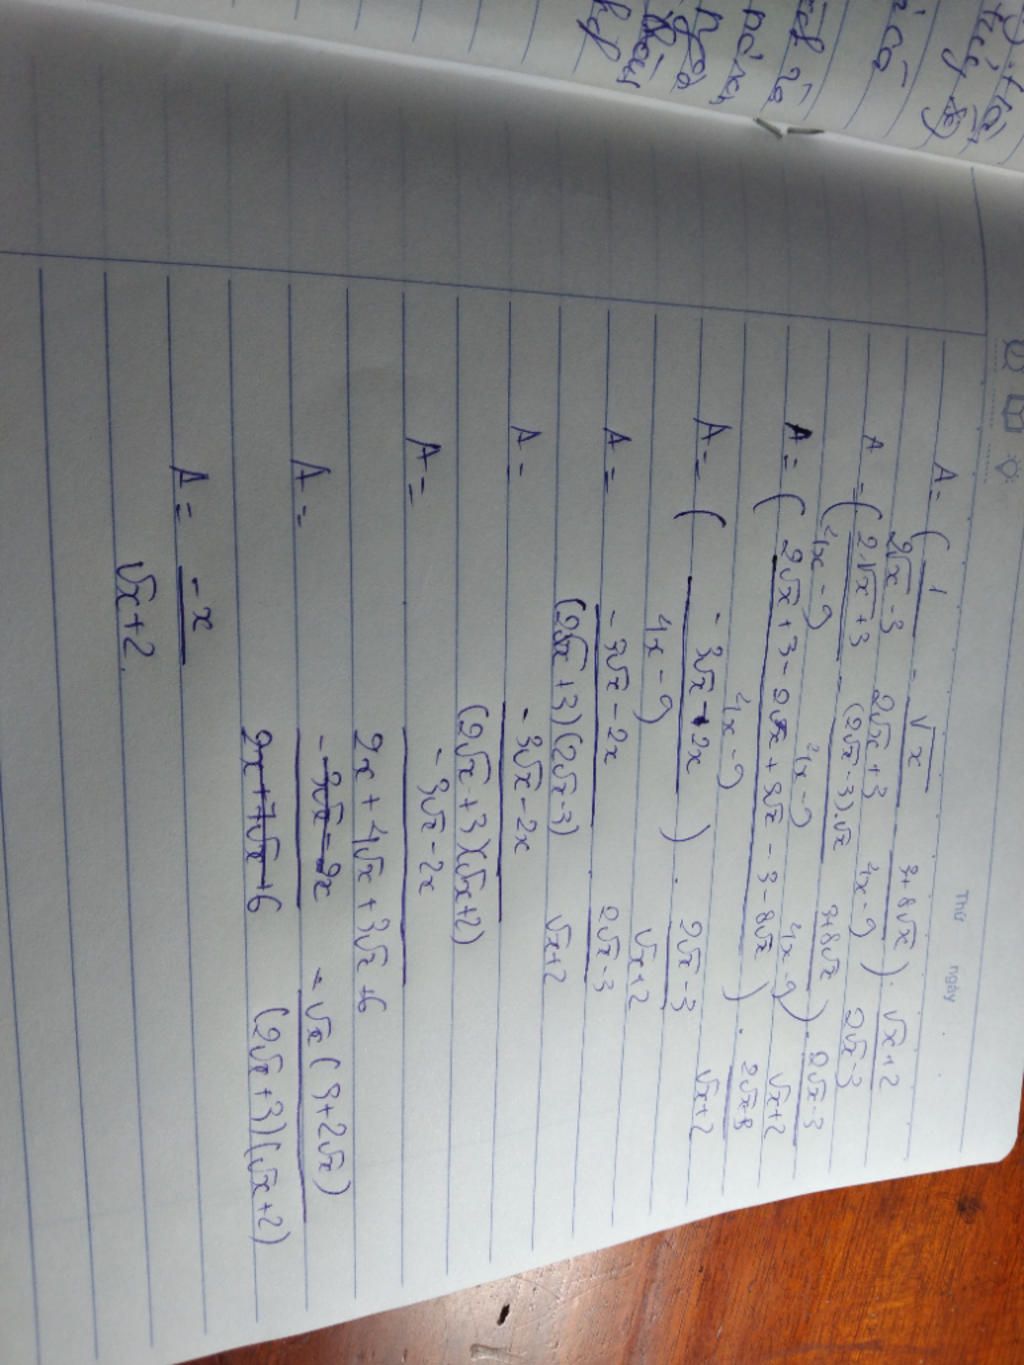 Thứ ngày
A = ( 1/(2√x - 3) - √x/(2√x + 3) - (3+8√x)/(4x - 9) ) : (√x+2)/(2√x-3)
A = ( (2√x + 3)/(4x - 9) - ((2√x - 3).√x)/(4x - 9) - (3+8√x)/(4x - 9) ) . (2√x-3)/(√x+2)
A = ( (2√x + 3 - 2x + 3√x - 3 - 8√x)/(4x - 9) ) . (2√x-3)/(√x+2)
A = ( (-3√x - 2x)/(4x - 9) ) . (2√x - 3)/(√x+2)
A = (-3√x - 2x)/((2√x + 3)(2√x-3)) (2√x-3)/(√x+2)
A = (-3√x - 2x)/((2√x+3)(√x+2))
A = (-3√x - 2x)/(2x + 4√x + 3√x + 6)
A = (-3√x - 2x)/(2x + 7√x + 6) = -√x(3+2√x)/((2√x+3)(√x+2))
A = -x/(√x+2).